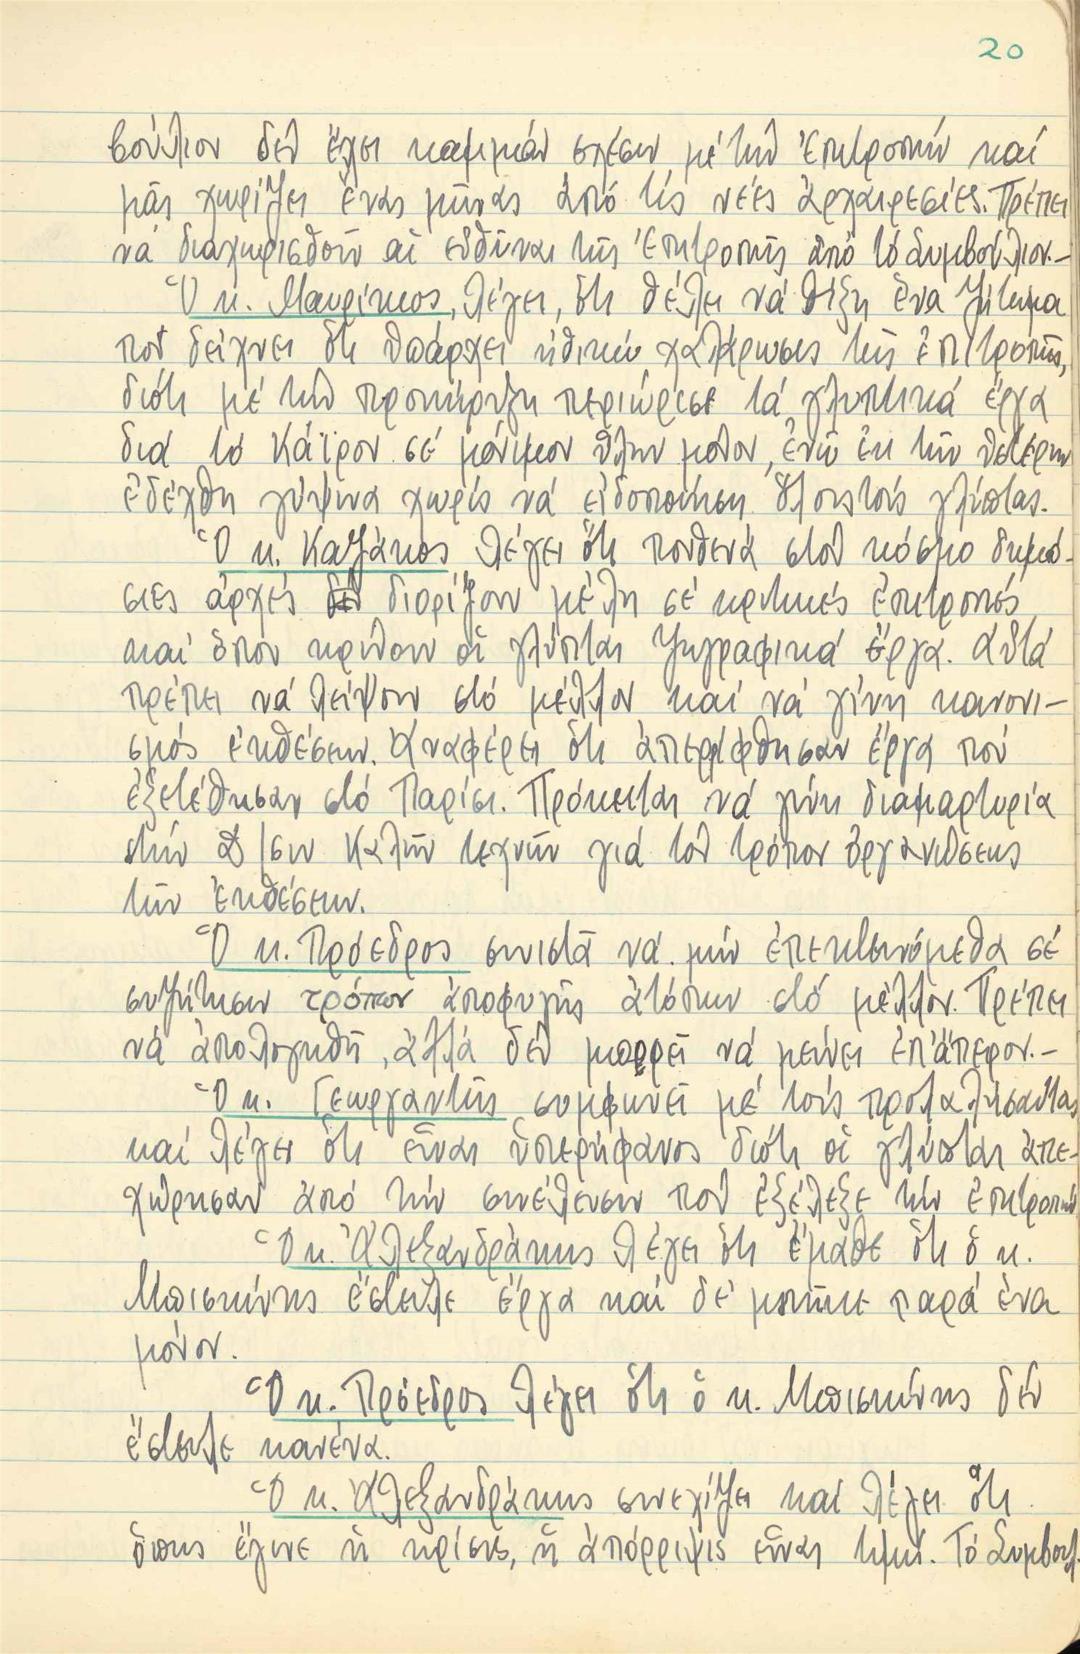 20
βούλιον δέν ἔχει καμμιάν σχέσιν μέ τήν Ἐπιτροπήν καί
μᾶς χωρίζει ἕνας μῆνας ἀπό τίς νέες ἀρχαιρεσίες. Πρέπει
νά διαχωρισθοῦν αἱ εὐθῦναι τῆς Ἐπιτροπῆς ἀπό τό Συμβούλιον.-
Ὁ κ. Μαυρίκιος, λέγει, ὅτι θέλει νά θίξη ἕνα ζήτημα
πού δείχνει ὅτι ὑπάρχει ἠθική χαλάρωσις τῆς ἐπιτροπῆς,
διότι μέ τήν προκήρυξη περιώρισε τά γλυπτικά ἔργα
διά τό Κάϊρον σέ μόνιμον ὕλην μόνον, ἐνῶ ἐκ τῶν ὑστέρων
ἐδέχθη γύψινα χωρίς νά εἰδοποιήση ὅλους τούς γλύπτας.
Ὁ κ. Καζάκος λέγει ὅτι πουθενά στόν κόσμο δημό-
σιες ἀρχές δέν διορίζουν μέλη σέ κριτικές ἐπιτροπές
καί ὅπου κρίνουν οἱ γλύπται ζωγραφικά ἔργα. Αὐτά
πρέπει νά λείψουν στό μέλλον καί νά γίνη κανονι-
σμός ἐκθέσεων. Ἀναφέρει ὅτι ἀπερρίφθησαν ἔργα πού
ἐξετέθησαν στό Παρίσι. Πρόκειται νά γίνη διαμαρτυρία
στήν Δ/σιν Καλῶν τεχνῶν γιά τόν τρόπον ὀργανώσεως
τῶν Ἐκθέσεων.
Ὁ κ. Πρόεδρος συνιστᾶ νά μήν ἐπεκτεινόμεθα σέ
συζήτησιν τρόπων ἀποφυγῆς ἀτόπων στό μέλλον. Πρέπει
νά ἀπολογηθῆ, ἀλλά δέν μπορεῖ νά μείνει ἐπ' ἄπειρον.-
Ὁ κ. Γεωργαντῆς συμφωνεῖ μέ τούς προλαλήσαντας
καί λέγει ὅτι εἶναι ὑπερήφανος διότι οἱ γλύπται ἀπε-
χώρησαν ἀπό τήν συνέλευσιν πού ἐξέλεξε τήν ἐπιτροπήν
Ὁ κ. Ἀλεξανδράκης λέγει ὅτι ἔμαθε ὅτι ὁ κ.
Μπισκίνης ἔστειλε ἔργα καί δέ μπῆκε παρά ἕνα
μόνον.
Ὁ κ. Πρόεδρος λέγει ὅτι ὁ κ. Μπισκίνης δέν
ἔστειλε κανένα.
Ὁ κ. Ἀλεξανδράκης συνεχίζει καί λέγει ὅτι
ὅπως ἔγινε ἡ κρίσις, ἡ ἀπόρριψις εἶναι τιμή. Τό Συμβούλ-